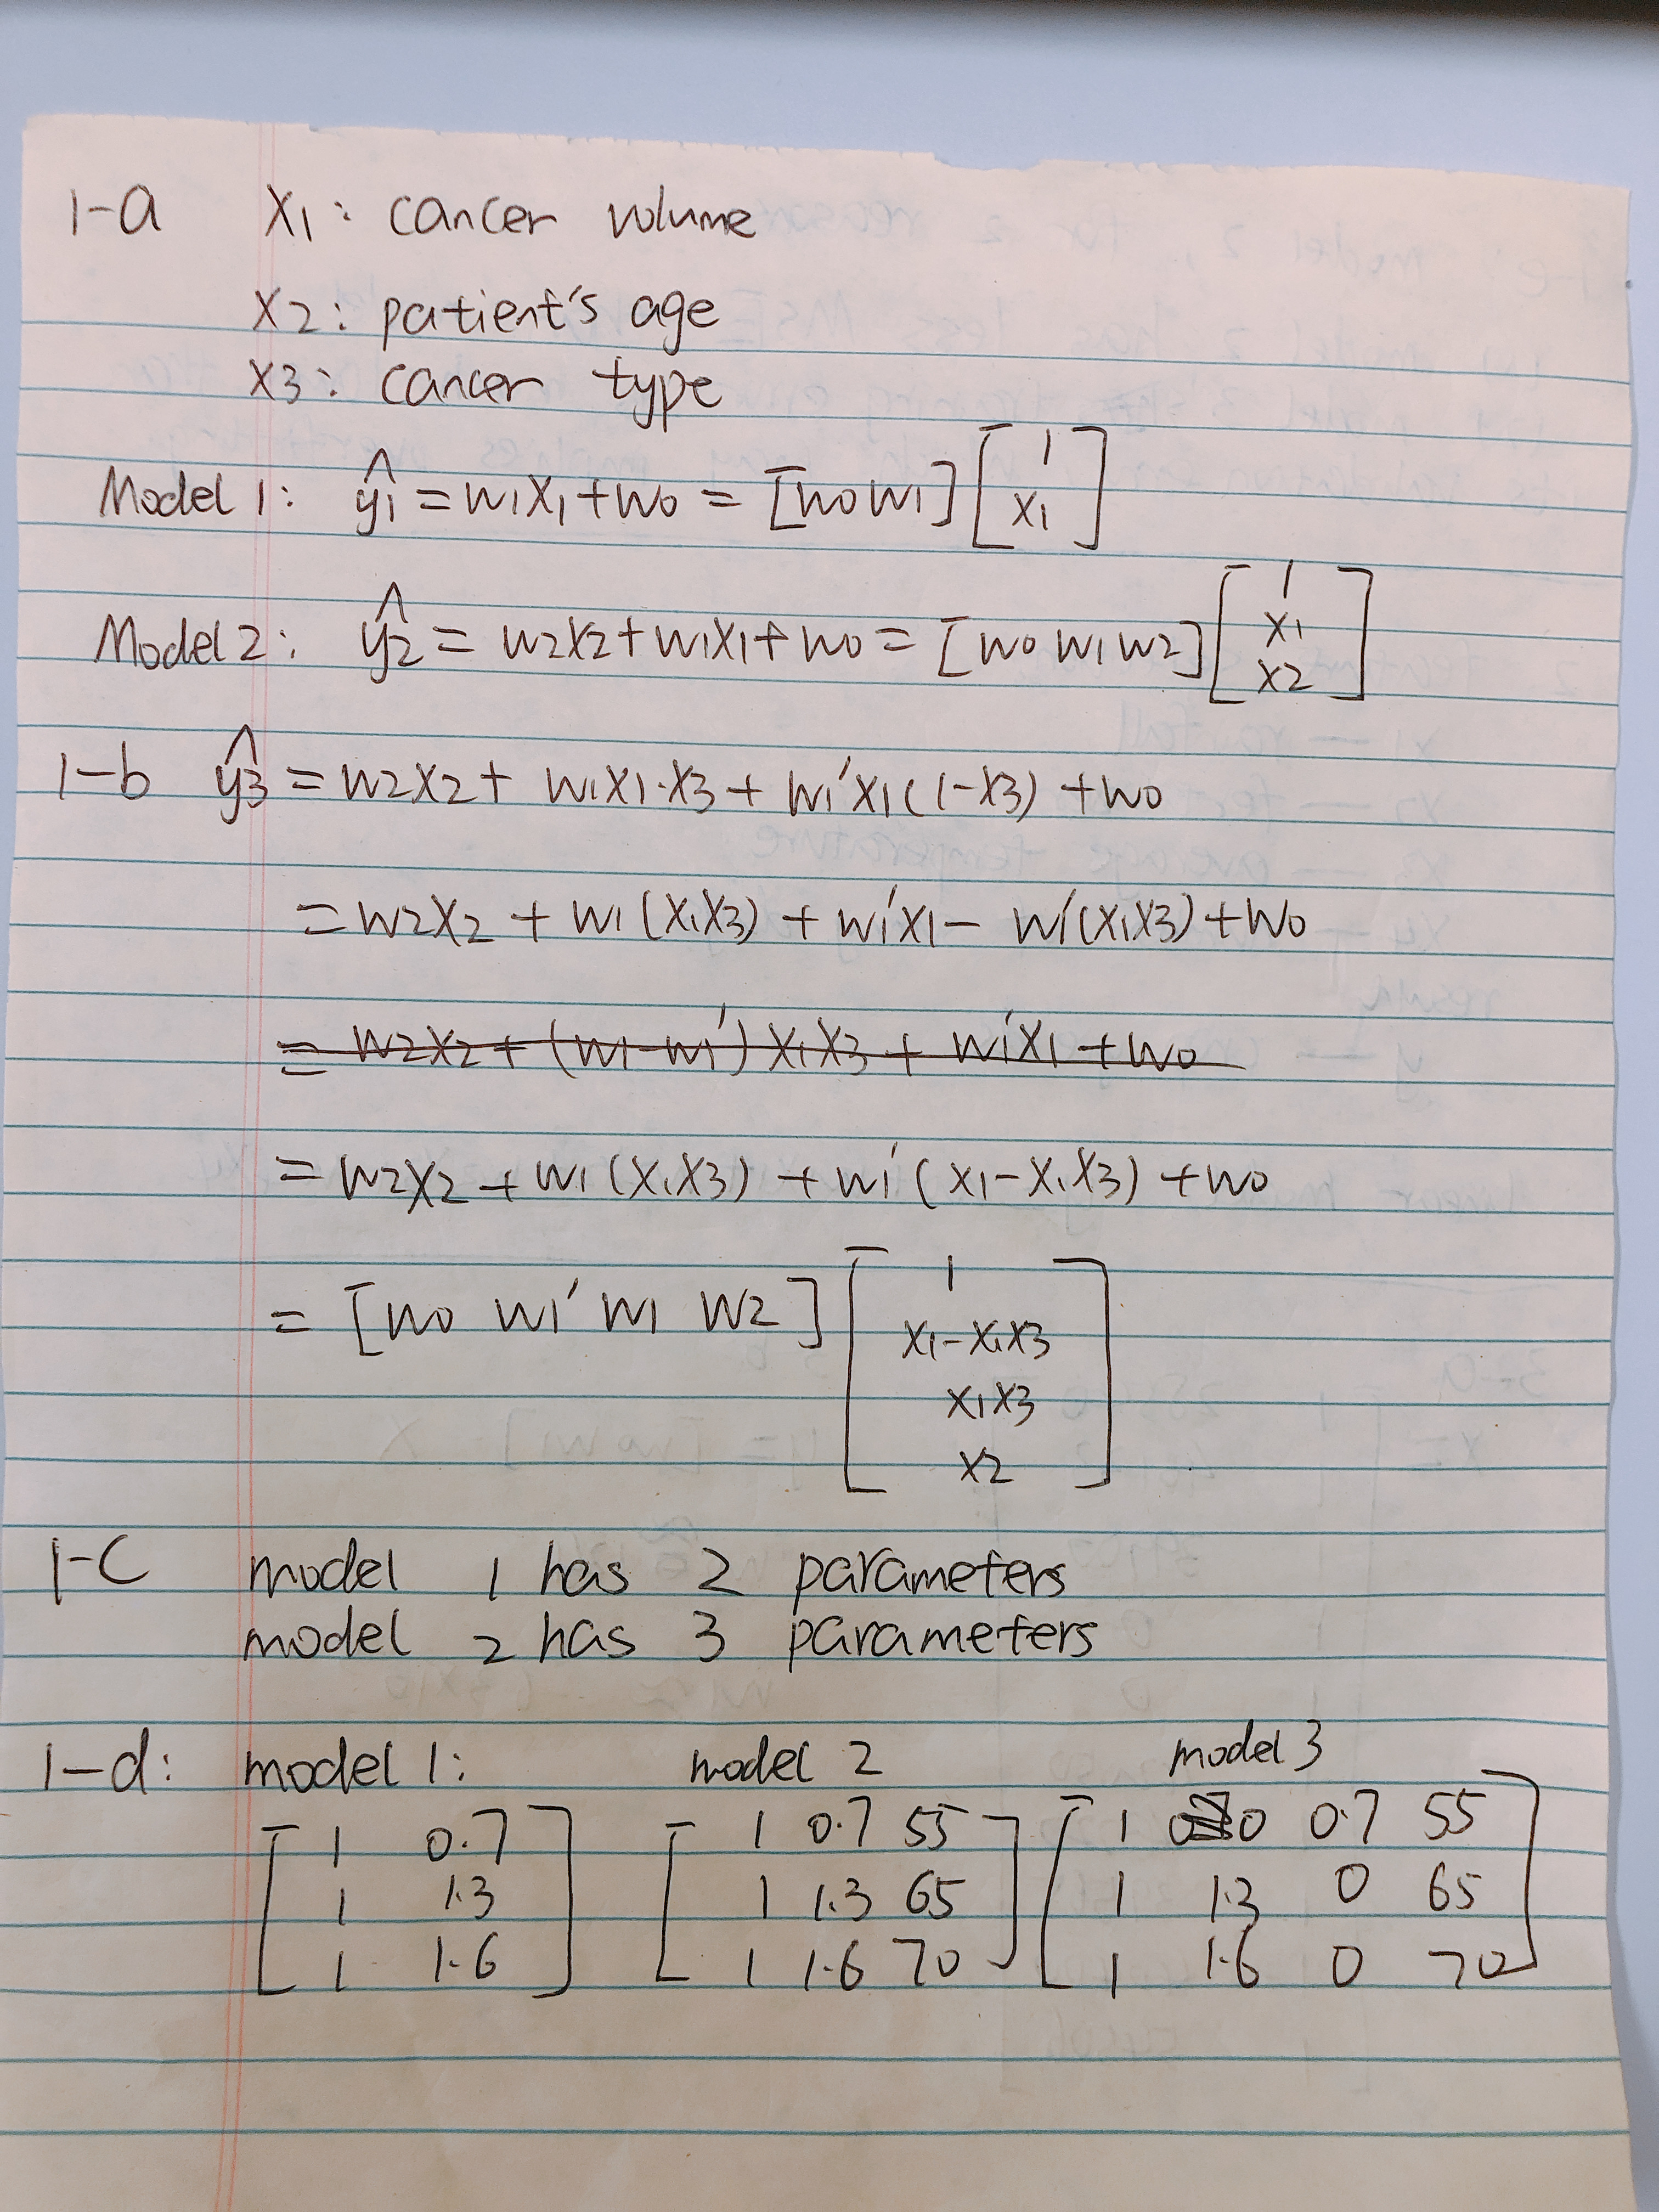 1-a X1: cancer volume
X2: patient's age
X3: cancer type
Model 1: ŷ1 = w1x1+w0 = [w0 w1] [1
x1]
Model 2: ŷ2 = w2x2+w1x1+w0 = [w0 w1 w2] [1
x1
x2]
1-b ŷ3 = w2x2+ w1x1·x3+ w1'x1(1-x3) +w0
= w2x2 + w1(x1x3) + w1'x1- w1'(x1x3)+w0
= w2x2+(w1-w1')x1x3+ w1'x1+w0
= w2x2+w1(x1x3) +w1'(x1-x1x3) +w0
= [w0 w1' w1 w2] [1
x1-x1x3
x1x3
x2]
1-C model 1 has 2 parameters
model 2 has 3 parameters
1-d: model 1: model 2 model 3
[1 0.7 [1 0.7 55 [1 0 0.7 55
1 1.3 1 1.3 65 1 1.3 0 65
1 1.6] 1 1.6 70] 1 1.6 0 70]